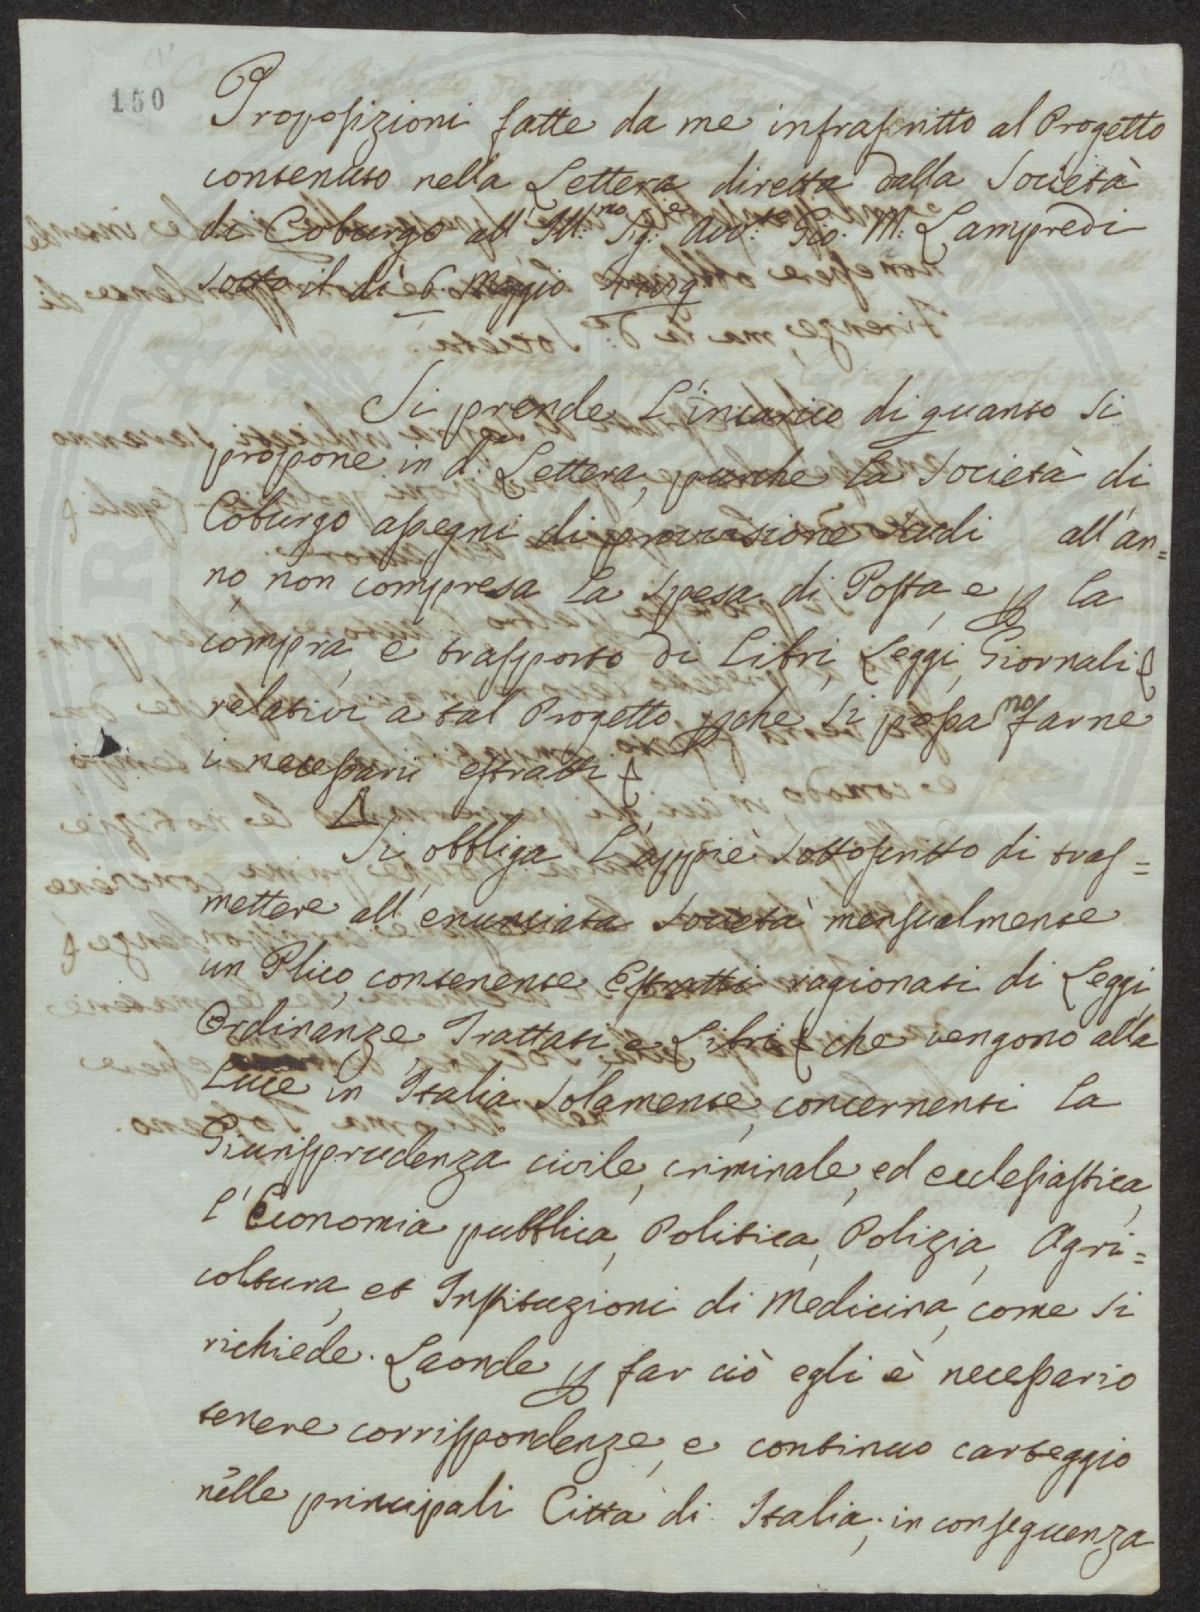 150
Proposizioni fatte da me infrascritto al Progetto
contenuto nella Lettera diretta dalla Società
di Coburgo all' Ill:mo Sig:e Avv:to Gio: M: Lampredi
sotto il dì 6 Maggio
Si prende L'incarico di quanto si
propone in d:a Lettera, purche La Società di
Coburgo assegni di provvisione scudi all'an=
no, non compresa La spesa di Posta, e p La
compra, e trasporto di Libri, Leggi, Giornali &
relativi a tal Progetto, pche si possano farne
i necessarii estratti &
Si obbliga L'appiè sottoscritto di tras=
mettere all'enunciata Società mensualmente
un Plico, contenente Estratti ragionati di Leggi,
Ordinanze, Trattati, e Libri & che vengono alla
Luce in Italia solamente, concernenti La
Giurisprudenza civile, criminale, ed ecclesiastica,
L'Economia pubblica, Politica, Polizia, Agri=
coltura, et Instituzioni di Medicina, come si
richiede. Laonde p far ciò egli è necessario
tenere corrispondenze, e continuo carteggio
nelle principali Città di Italia; in conseguenza